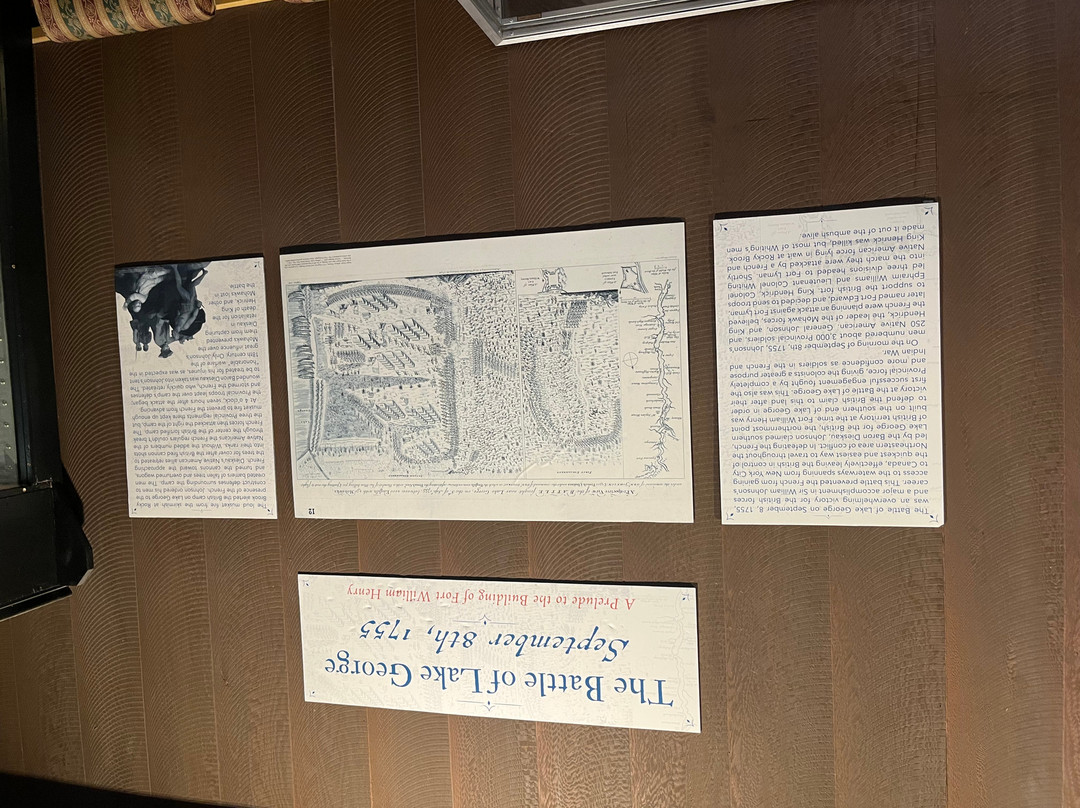 The Battle of Lake George
September 8th, 1755
A Prelude to the Building of Fort William Henry
The Battle of Lake George on September 8, 1755,
was an overwhelming victory for the British forces
and a major accomplishment in Sir William Johnson's
career. This battle prevented the French from gaining
access to the waterways spanning from New York City
to Canada, effectively leaving the British in control of
the quickest and easiest way to travel throughout the
Northeastern area of conflict. In defeating the French,
led by the Baron Dieskau, Johnson claimed southern
Lake George for the British, the northernmost point
of British territory at the time. Fort William Henry was
built on the southern end of Lake George in order
to defend the British claim to this land after their
victory at the Battle of Lake George. This was also the
first successful engagement fought by a completely
Provincial force, giving the colonists greater purpose
and more confidence as soldiers in the French and
Indian War.
On the morning of September 8th, 1755, Johnson's
men numbered about 3,000 Provincial soldiers, and
250 Native American. General Johnson, and King
Hendrick, the leader of the Mohawk forces, believed
the French were planning an attack against Fort Lyman,
later named Fort Edward, and decided to send troops
to support the British fort. King Hendrick, Colonel
Ephraim Williams and Lieutenant Colonel Whiting
led three divisions headed to Fort Lyman. Shortly
into the march they were attacked by a French and
Native American force lying in wait at Rocky Brook.
King Hendrick was killed, but most of Whiting's men
made it out of the ambush alive.
12
The loud musket fire from the skirmish at Rocky
Brook alerted the British camp on Lake George to the
presence of the French. Johnson ordered his men to
construct defenses surrounding the camp. The men
created barriers of fallen trees and overturned wagons,
and turned the cannons toward the approaching
French. Dieskau's Native American allies retreated to
the trees for cover after the British fired cannon shots
into their ranks. Without the added numbers of the
Native Americans the French regulars couldn't break
through the center of the British fortified camp. The
French forces then attacked the right of the camp, but
the three Provincial regiments there kept up enough
musket fire to prevent the French from advancing.
At 4 o'clock, seven hours after the attack began,
the Provincial troops leapt over the camp's defenses
and stormed the French, who quickly retreated. The
wounded Baron Dieskau was taken into Johnson's tent
to be treated for his injuries, as was expected in the
"honorable" warfare of the
18th century. Only Johnson's
great influence over the
Mohawks prevented
them from capturing
Dieskau in
retaliation for the
death of King
Hendrick and other
Mohawks lost in
the battle.